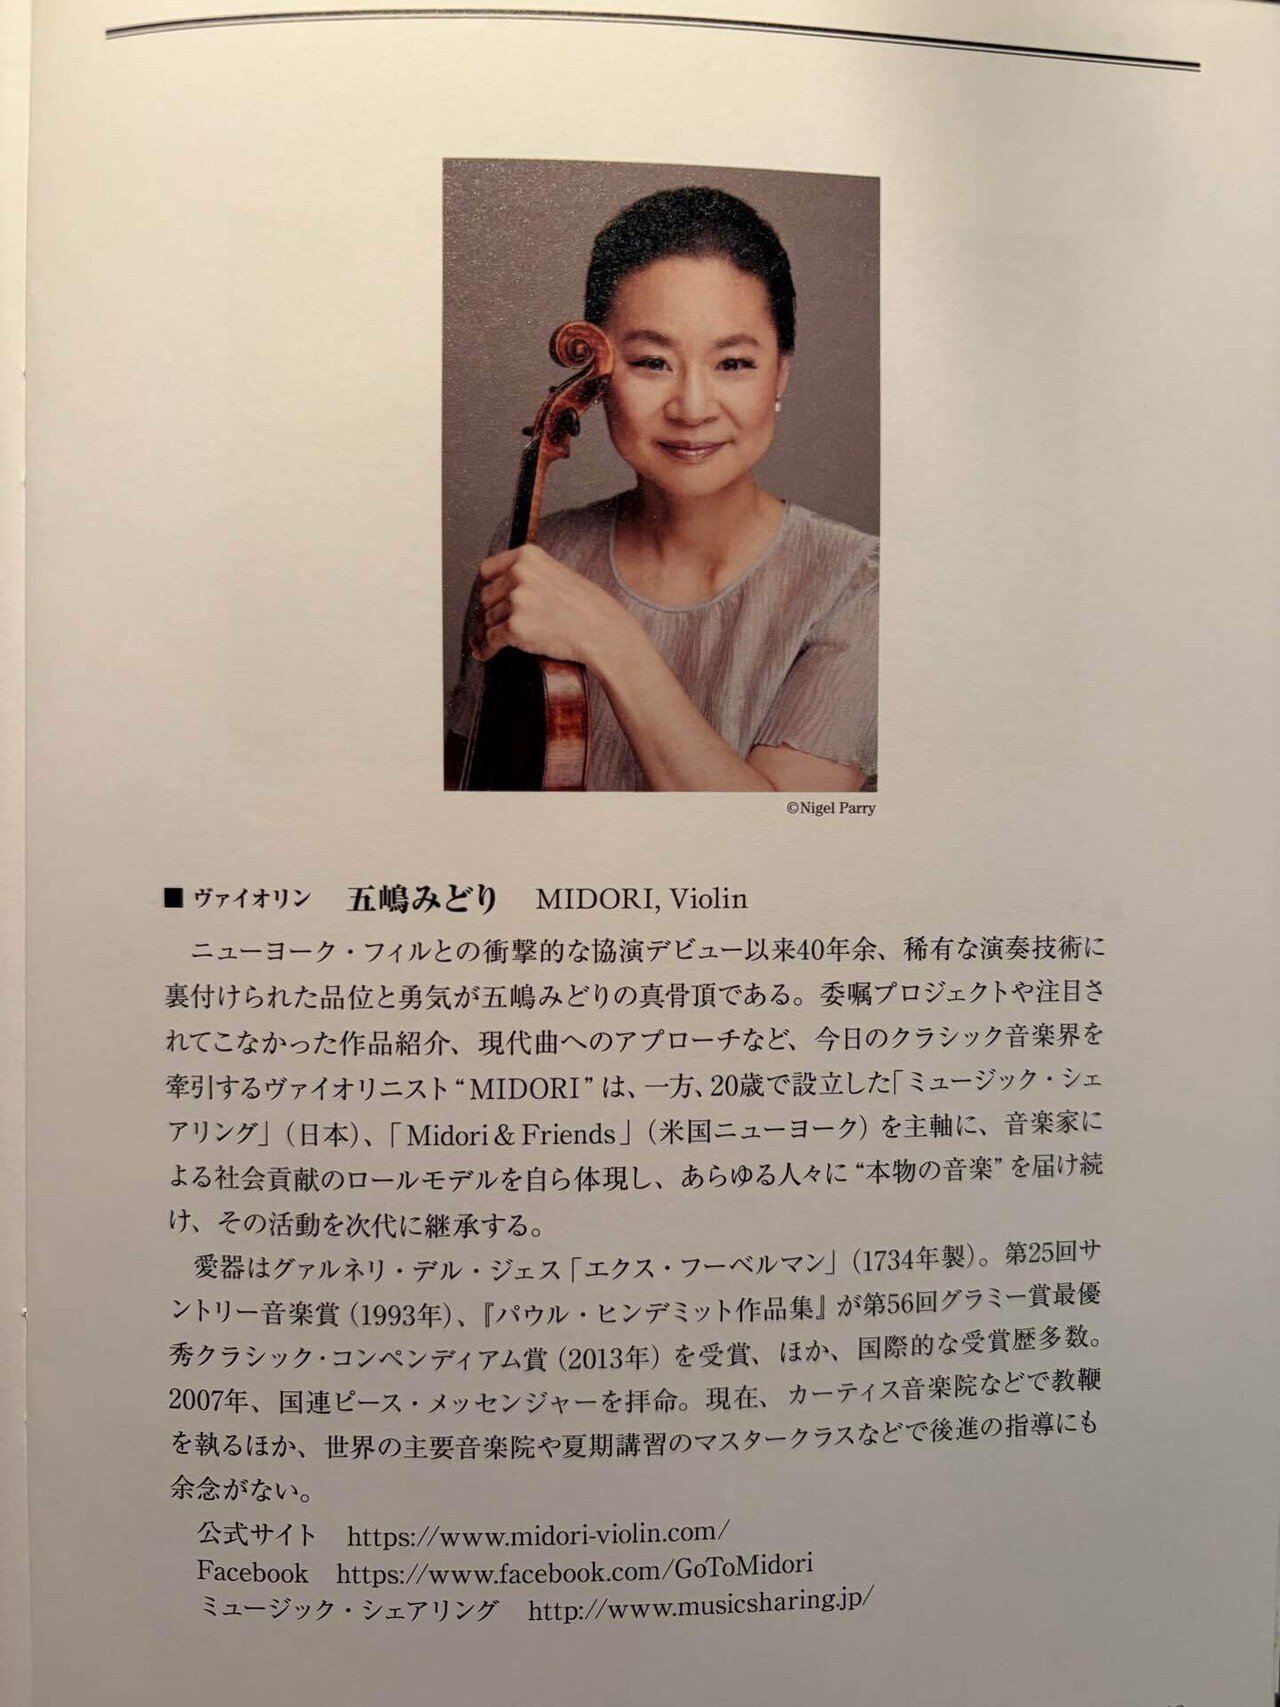 ©Nigel Parry
■ ヴァイオリン 五嶋みどり MIDORI, Violin
ニューヨーク・フィルとの衝撃的な協演デビュー以来40年余、稀有な演奏技術に
裏付けられた品位と勇気が五嶋みどりの真骨頂である。委嘱プロジェクトや注目さ
れてこなかった作品紹介、現代曲へのアプローチなど、今日のクラシック音楽界を
牽引するヴァイオリニスト“MIDORI”は、一方、20歳で設立した「ミュージック・シェ
アリング」（日本）、「Midori & Friends」（米国ニューヨーク）を主軸に、音楽家に
よる社会貢献のロールモデルを自ら体現し、あらゆる人々に“本物の音楽”を届け続
け、その活動を次代に継承する。
愛器はグァルネリ・デル・ジェス「エクス・フーベルマン」（1734年製）。第25回サ
ントリー音楽賞（1993年）、『パウル・ヒンデミット作品集』が第56回グラミー賞最優
秀クラシック・コンペンディアム賞（2013年）を受賞、ほか、国際的な受賞歴多数。
2007年、国連ピース・メッセンジャーを拝命。現在、カーティス音楽院などで教鞭
を執るほか、世界の主要音楽院や夏期講習のマスタークラスなどで後進の指導にも
余念がない。
公式サイト https://www.midori-violin.com/
Facebook https://www.facebook.com/GoToMidori
ミュージック・シェアリング http://www.musicsharing.jp/